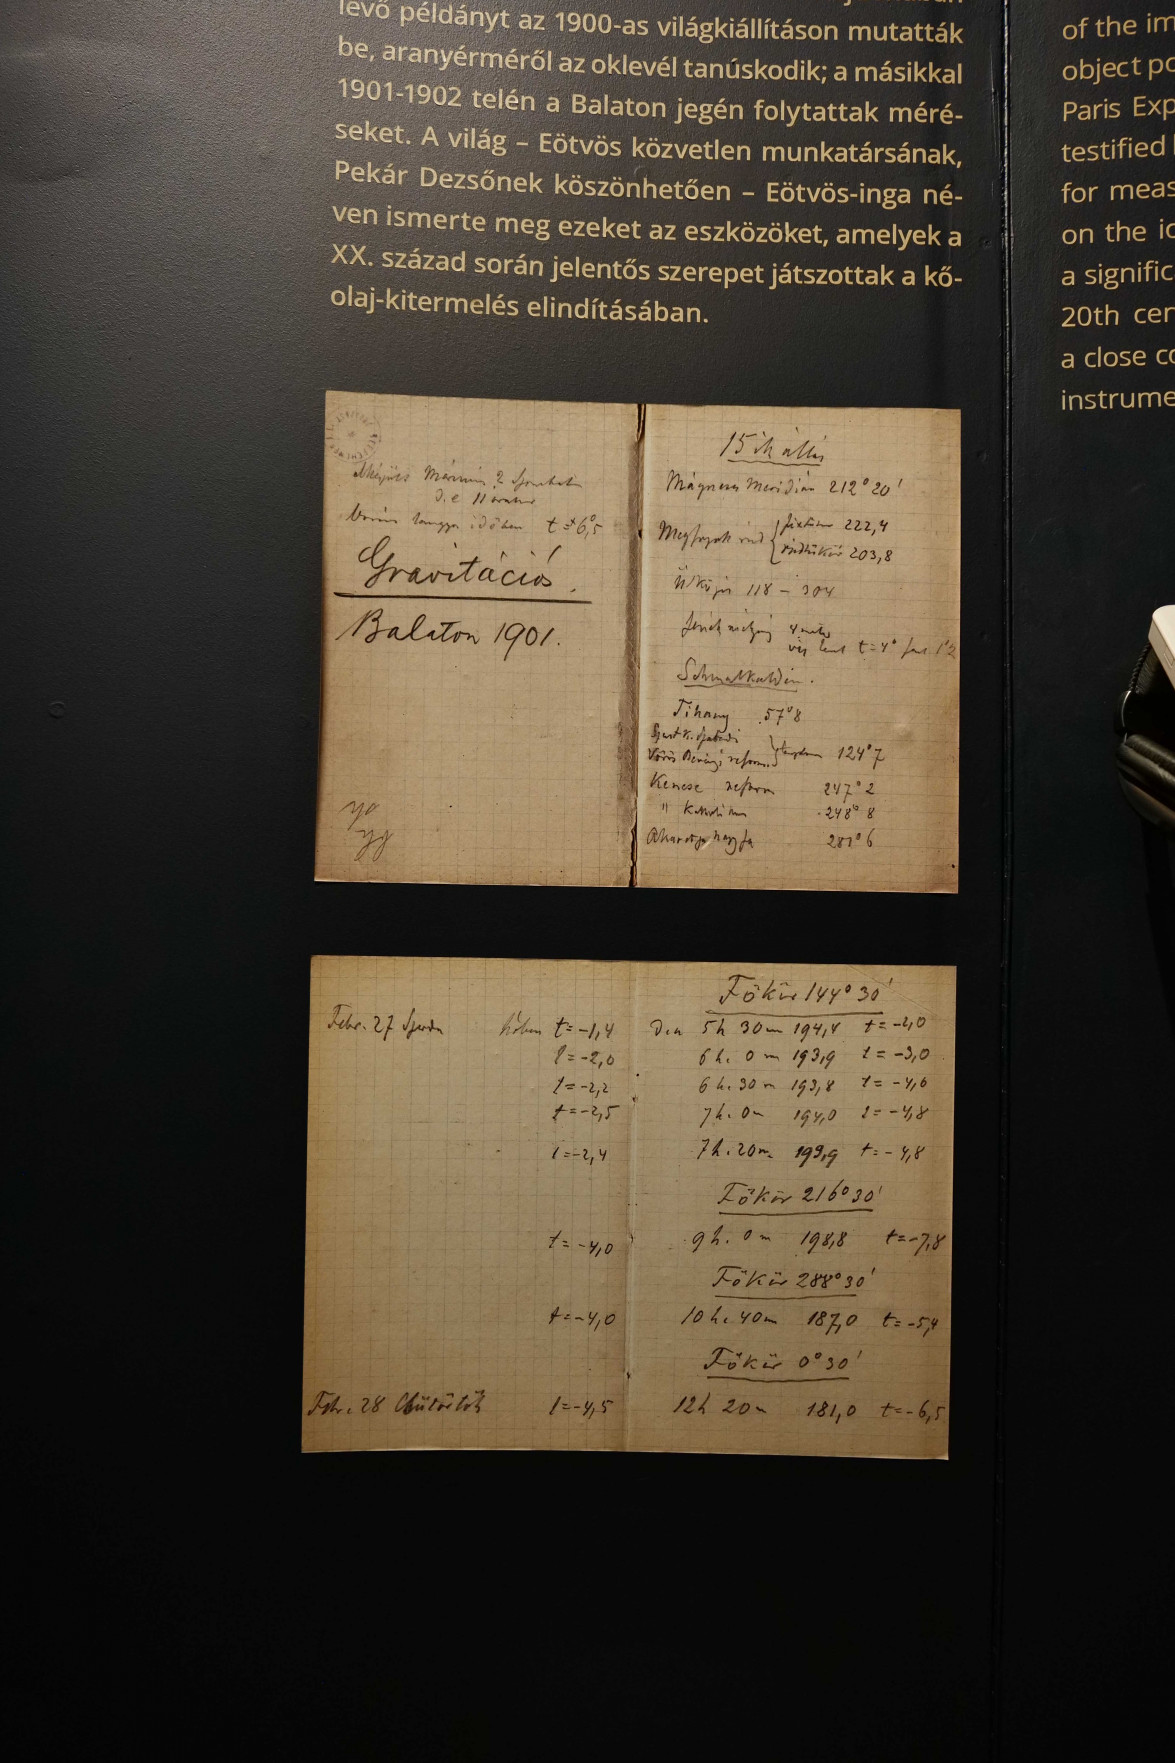 levő példányt az 1900-as világkiállításon mutatták
be, aranyérméről az oklevél tanúskodik; a másikkal
1901-1902 telén a Balaton jegén folytattak méré-
seket. A világ – Eötvös közvetlen munkatársának,
Pekár Dezsőnek köszönhetően – Eötvös-inga né-
ven ismerte meg ezeket az eszközöket, amelyek a
XX. század során jelentős szerepet játszottak a kő-
olaj-kitermelés elindításában.
of the im
object po
Paris Exp
testified
for meas
on the ic
a signific
20th cen
a close co
instrume
t = +6°,5
Gravitációs.
Balaton 1901.
15ik állás
Mágneses Meridián 212° 20'
222,4
203,8
118 – 304
t = 4°
Tihany 57°8
124°7
Kenese reform 247°2
" 248°8
281°6
Febr. 27 Szerda t = -1,4
t = -2,0
t = -2,2
t = -2,5
t = -2,4
t = -4,0
t = -4,0
Febr. 28 Csütörtök t = -4,5
Főkör 144° 30'
5h 30m 194,4 t = -2,0
6h. 0m 193,9 t = -3,0
6h. 30m 193,8 t = -4,6
7h. 0m 194,0 t = -4,8
7h. 20m. 193,9 t = -4,8
Főkör 216° 30'
9h. 0m 198,8 t = -7,8
Főkör 288° 30'
10h. 40m 187,0 t = -5,4
Főkör 0° 30'
12h 20m 181,0 t = -6,5